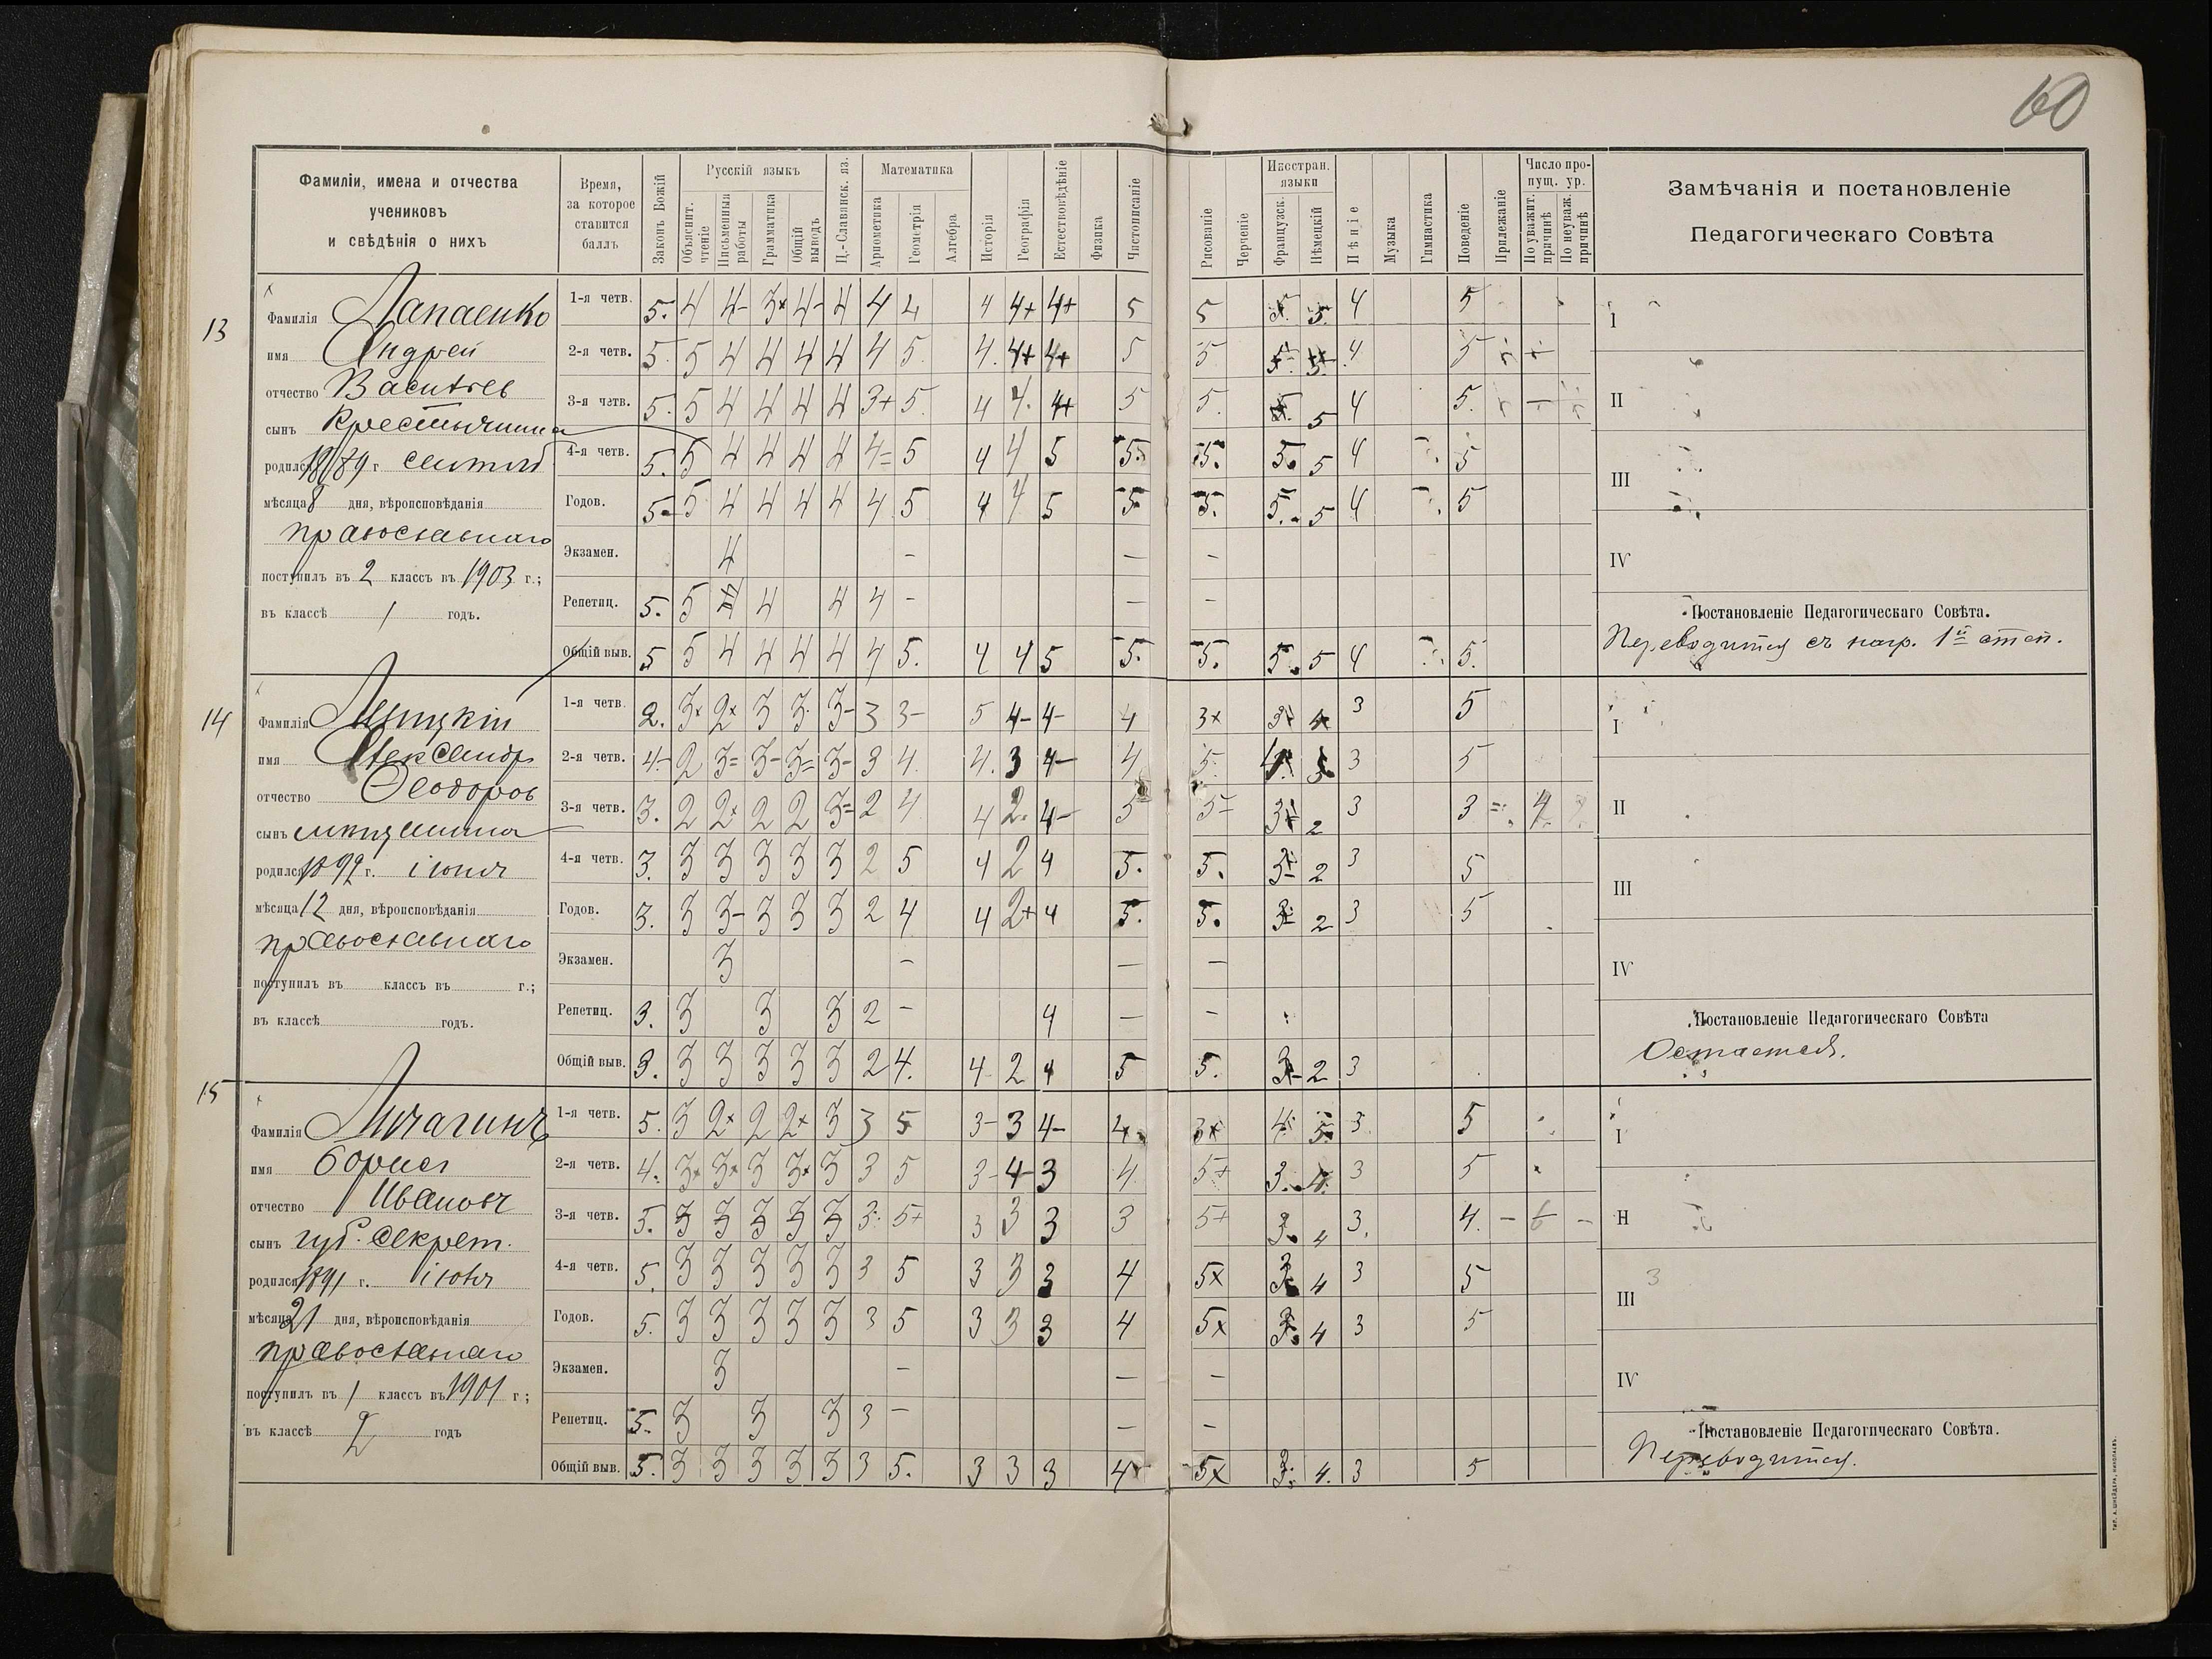 60
Фамиліи, имена и отчества
учениковъ
и свѣдѣнія о нихъ
Время,
за которое
ставится
баллъ
Законъ Божій
Русскій языкъ
Объяснит. чтеніе
Письменныя работы
Грамматика
Общій выводъ
Ц.-Славянск. яз.
Математика
Ариѳметика
Геометрія
Алгебра
Исторія
Географія
Естествовѣдѣніе
Физика
Чистописаніе
Рисованіе
Черченіе
Иностран. языки
Французск.
Нѣмецкій
Пѣніе
Музыка
Гимнастика
Поведеніе
Прилежаніе
Число пропущ. ур.
По уважит. причинѣ
По неуваж. причинѣ
Замѣчанія и постановленіе
Педагогическаго Совѣта
13
Фамилія Лапаенко
имя Андрей
отчество Васильев
сынъ Крестьянина
родился 1889 г.
мѣсяца 8 дня, вѣроисповѣданія
православнаго
поступилъ въ 2 классъ въ 1903 г.;
въ классѣ 1 годъ.
1-я четв. 5. 4 4- 3+ 4- 4 4 4 4 4+ 4+ 5 5 5. 4 5
2-я четв. 5. 5 4 4 4 4 4 5. 4. 4+ 4+ 5 5 4 5
3-я четв. 5. 5 4 4 4 4 3+ 5. 4 4. 4+ 5 5. 5 4 5.
4-я четв. 5. 5 4 4 4 4 4= 5 4 4 5 5. 5. 5. 5 4 5
Годов. 5. 5 4 4 4 4 4 5 4 4 5 5 5. 5. 5 4 5
Экзамен. 4 - - -
Репетиц. 5. 5 4 4 4 4 - - -
Общій выв. 5 5 4 4 4 4 4 5. 4 4 5 5. 5. 5. 5 4 5.
I
II
III
IV
Постановленіе Педагогическаго Совѣта.
Переводится съ нагр. 1й степ.
14
Фамилія
имя Александр
отчество Ѳеодоров
сынъ мѣщанина
родился г. іюня
мѣсяца 12 дня, вѣроисповѣданія
православнаго
поступилъ въ классъ въ г.;
въ классѣ годъ.
1-я четв. 2. 3+ 2+ 3 3 3- 3 3- 5 4- 4- 4 3+ 3 5
2-я четв. 4- 2 3= 3- 3= 3- 3 4. 4. 3 4- 4 5. 3 5
3-я четв. 3. 2 2+ 2 2 3= 2 4 4 2. 4- 5 5- 2 3 3
4-я четв. 3. 3 3 3 3 3 2 5 4 2 4 5. 5. 2 3 5
Годов. 3. 3 3- 3 3 3 2 4 4 2+ 4 5. 5. 2 3 5
Экзамен. 3 - - -
Репетиц. 3. 3 3 3 2 - 4 - -
Общій выв. 3. 3 3 3 3 3 2 4. 4 2 4 5 5. 3- 2 3
I
II
III
IV
Постановленіе Педагогическаго Совѣта
Остается.
15
Фамилія Личагинъ
имя Борисъ
отчество Ивановъ
сынъ губ. секрет.
родился 1891 г.
мѣсяца 21 дня, вѣроисповѣданія
православнаго
поступилъ въ 1 классъ въ 1901 г;
въ классѣ 2 годъ
1-я четв. 5. 3 2+ 2 2+ 3 3 5 3- 3 4- 4 3+ 4 5. 3 5
2-я четв. 4. 3+ 3+ 3 3+ 3 3 5 3- 4- 3 4. 5+ 3. 4. 3 5
3-я четв. 5. 3 3 3 3 3 3 5+ 3 3 3 3 5+ 3. 4 3. 4.
4-я четв. 5. 3 3 3 3 3 3 5 3 3 3 4 5+ 3 4 3 5
Годов. 5. 3 3 3 3 3 3 5 3 3 3 4 5+ 3. 4 3 5
Экзамен. 3 - - -
Репетиц. 5. 3 3 3 3 - - -
Общій выв. 5. 3 3 3 3 3 3 5. 3 3 3 4 5+ 3. 4. 3 5
I
II
III
IV
Постановленіе Педагогическаго Совѣта.
Переводится.
ТИП. А. ШНЕЙДЕРА, НИКОЛАЕВЪ.